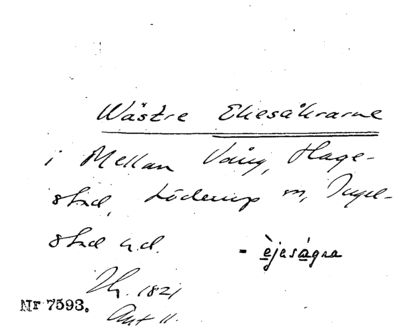 Wästre Ekesåkrarne
i Mellan Vång, Hage-
stad, Löderup sn, Ingel-
stad hd.
- èjesågna
1821
Nr 7593.
Akt 11.